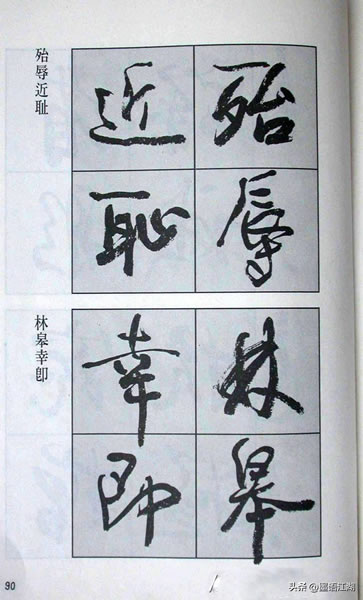 殆辱
近恥
殆辱近耻
林皋
幸即
林皋幸即
90
头条 @墨语江湖